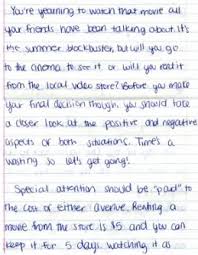 You're yearning to watch that movie all
your friends have been talking about. It's
the summer blockbuster, but will you go
to the cinema to see it or will you rent it
from the local video store? Before you make
your final decision though, you should take
a closer look at the positive and negative
aspects of both situations. Time's a
wasting so let's get going!
Special attention should be "paid" to
the cost of either avenue. Renting a
movie from the store is $5 and you can
keep it for 5 days. Watching it as